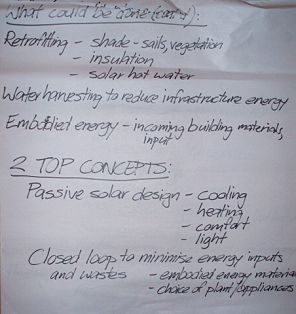 What could be done (cont'd):
Retrofitting - shade - sails, vegetation
- insulation
- solar hot water
Water harvesting to reduce infrastructure energy
Embodied energy - incoming building materials,
input
2 TOP CONCEPTS:
Passive solar design - cooling
- heating
- comfort
- light
Closed loop to minimise energy inputs
and wastes - embodied energy material
- choice of plant/appliances